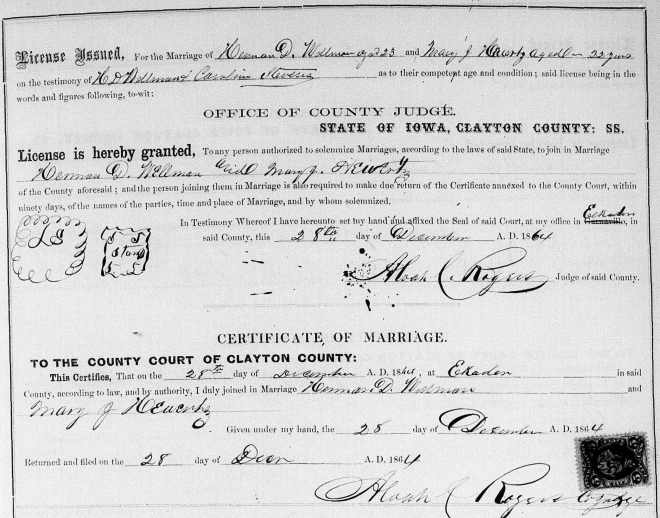 License Issued, For the Marriage of Herman D. Wellman aged 23 and Mary J aged 22 yrs
on the testimony of H D Wellman & Caroline as to their competent age and condition; said license being in the
words and figures following, to-wit:
OFFICE OF COUNTY JUDGE.
STATE OF IOWA, CLAYTON COUNTY: SS.
License is hereby granted, To any person authorized to solemnize Marriages, according to the laws of said State, to join in Marriage
Herman D. Wellman and Mary J.
of the County aforesaid; and the person joining them in Marriage is also required to make due return of the Certificate annexed to the County Court, within
ninety days, of the names of the parties, time and place of Marriage, and by whom solemnized.
In Testimony Whereof I have hereunto set my hand and affixed the Seal of said Court, at my office in Elkader
LS
said County, this 28th day of December A. D. 1864
Rogers Judge of said County.
CERTIFICATE OF MARRIAGE.
TO THE COUNTY COURT OF CLAYTON COUNTY:
This Certifies, That on the 28th day of December A. D. 1864, at Elkader in said
County, according to law, and by authority, I duly joined in Marriage Herman D. Wellman and
Mary J
Given under my hand, the 28 day of December A. D. 1864
Returned and filed on the 28 day of Decr A. D. 1864
Rogers Co Judge